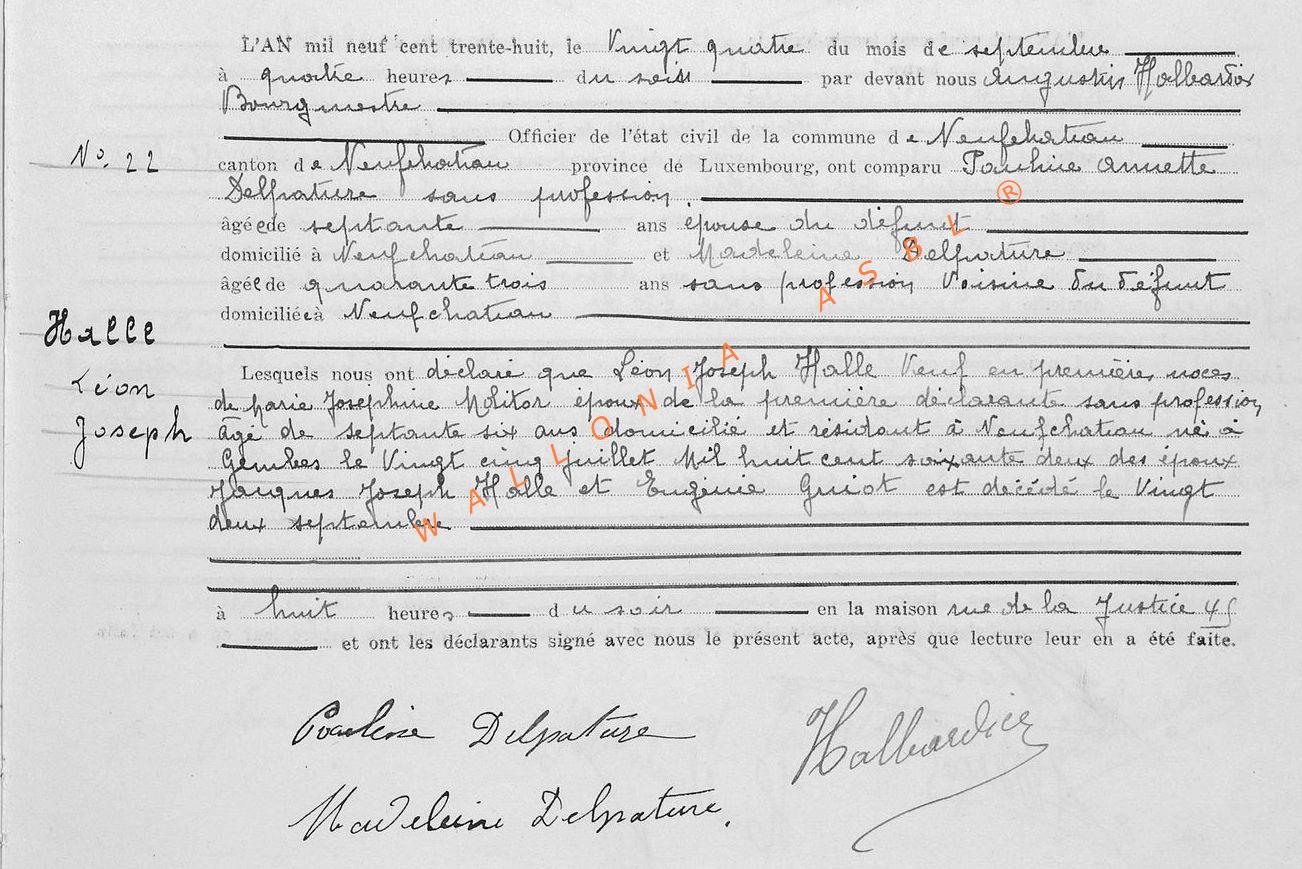 L'AN mil neuf cent trente-huit, le Vingt quatre du mois de septembre
à quatre heures du soir par devant nous Augustin Halbardier
Bourgmestre
Officier de l'état civil de la commune de Neufchateau
No. 22
canton de Neufchateau province de Luxembourg, ont comparu Pauline Annette
Delpature sans profession.
âgée de septante ans épouse du défunt
domicilié à Neufchateau et Madeleine Delpature
âgée de quarante trois ans sans profession Voisine du défunt
domiciliée à Neufchateau
Halle
Léon
Joseph
Lesquels nous ont déclaré que Léon Joseph Halle Veuf en premières noces
de Marie Josephine Molitor époux de la première déclarante sans profession
âgé de septante six ans domicilié et résidant à Neufchateau né à
Gembes le Vingt cinq Juillet Mil huit cent soixante deux des époux
Jacques Joseph Halle et Eugénie Guiot est décédé le Vingt
deux septembre
à huit heures du soir en la maison rue de la Justice 45
et ont les déclarants signé avec nous le présent acte, après que lecture leur en a été faite.
Pauline Delpature
Halbardier
Madeleine Delpature.
WALLONIA ASBL ®